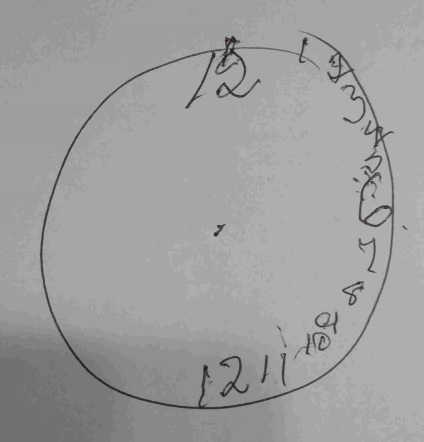 12
1
2
3
4
5
6
7
8
9
10
11
12